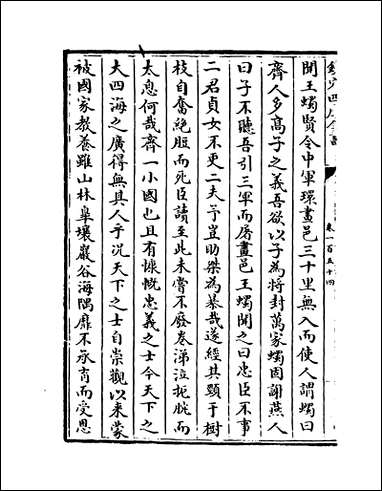 欽定四庫全書
卷一百五十四
聞王蠋賢令中軍環畫邑三十里無入而使人謂蠋曰
齊人多高子之義吾欲以子為將封萬家蠋固謝燕人
曰子不聽吾引三軍而屠畫邑王蠋聞之曰忠臣不事
二君貞女不更二夫予豈助桀為暴哉遂經其頸于樹
枝自奮絶脰而死臣讀至此未嘗不廢卷涕泣扼腕而
太息何哉齊一小國也且有慷慨忠義之士今天下之
大四海之廣得無其人乎況天下之士自崇觀以来蒙
被國家教養雖山林皋壤巖谷海隅靡不承育而受恩